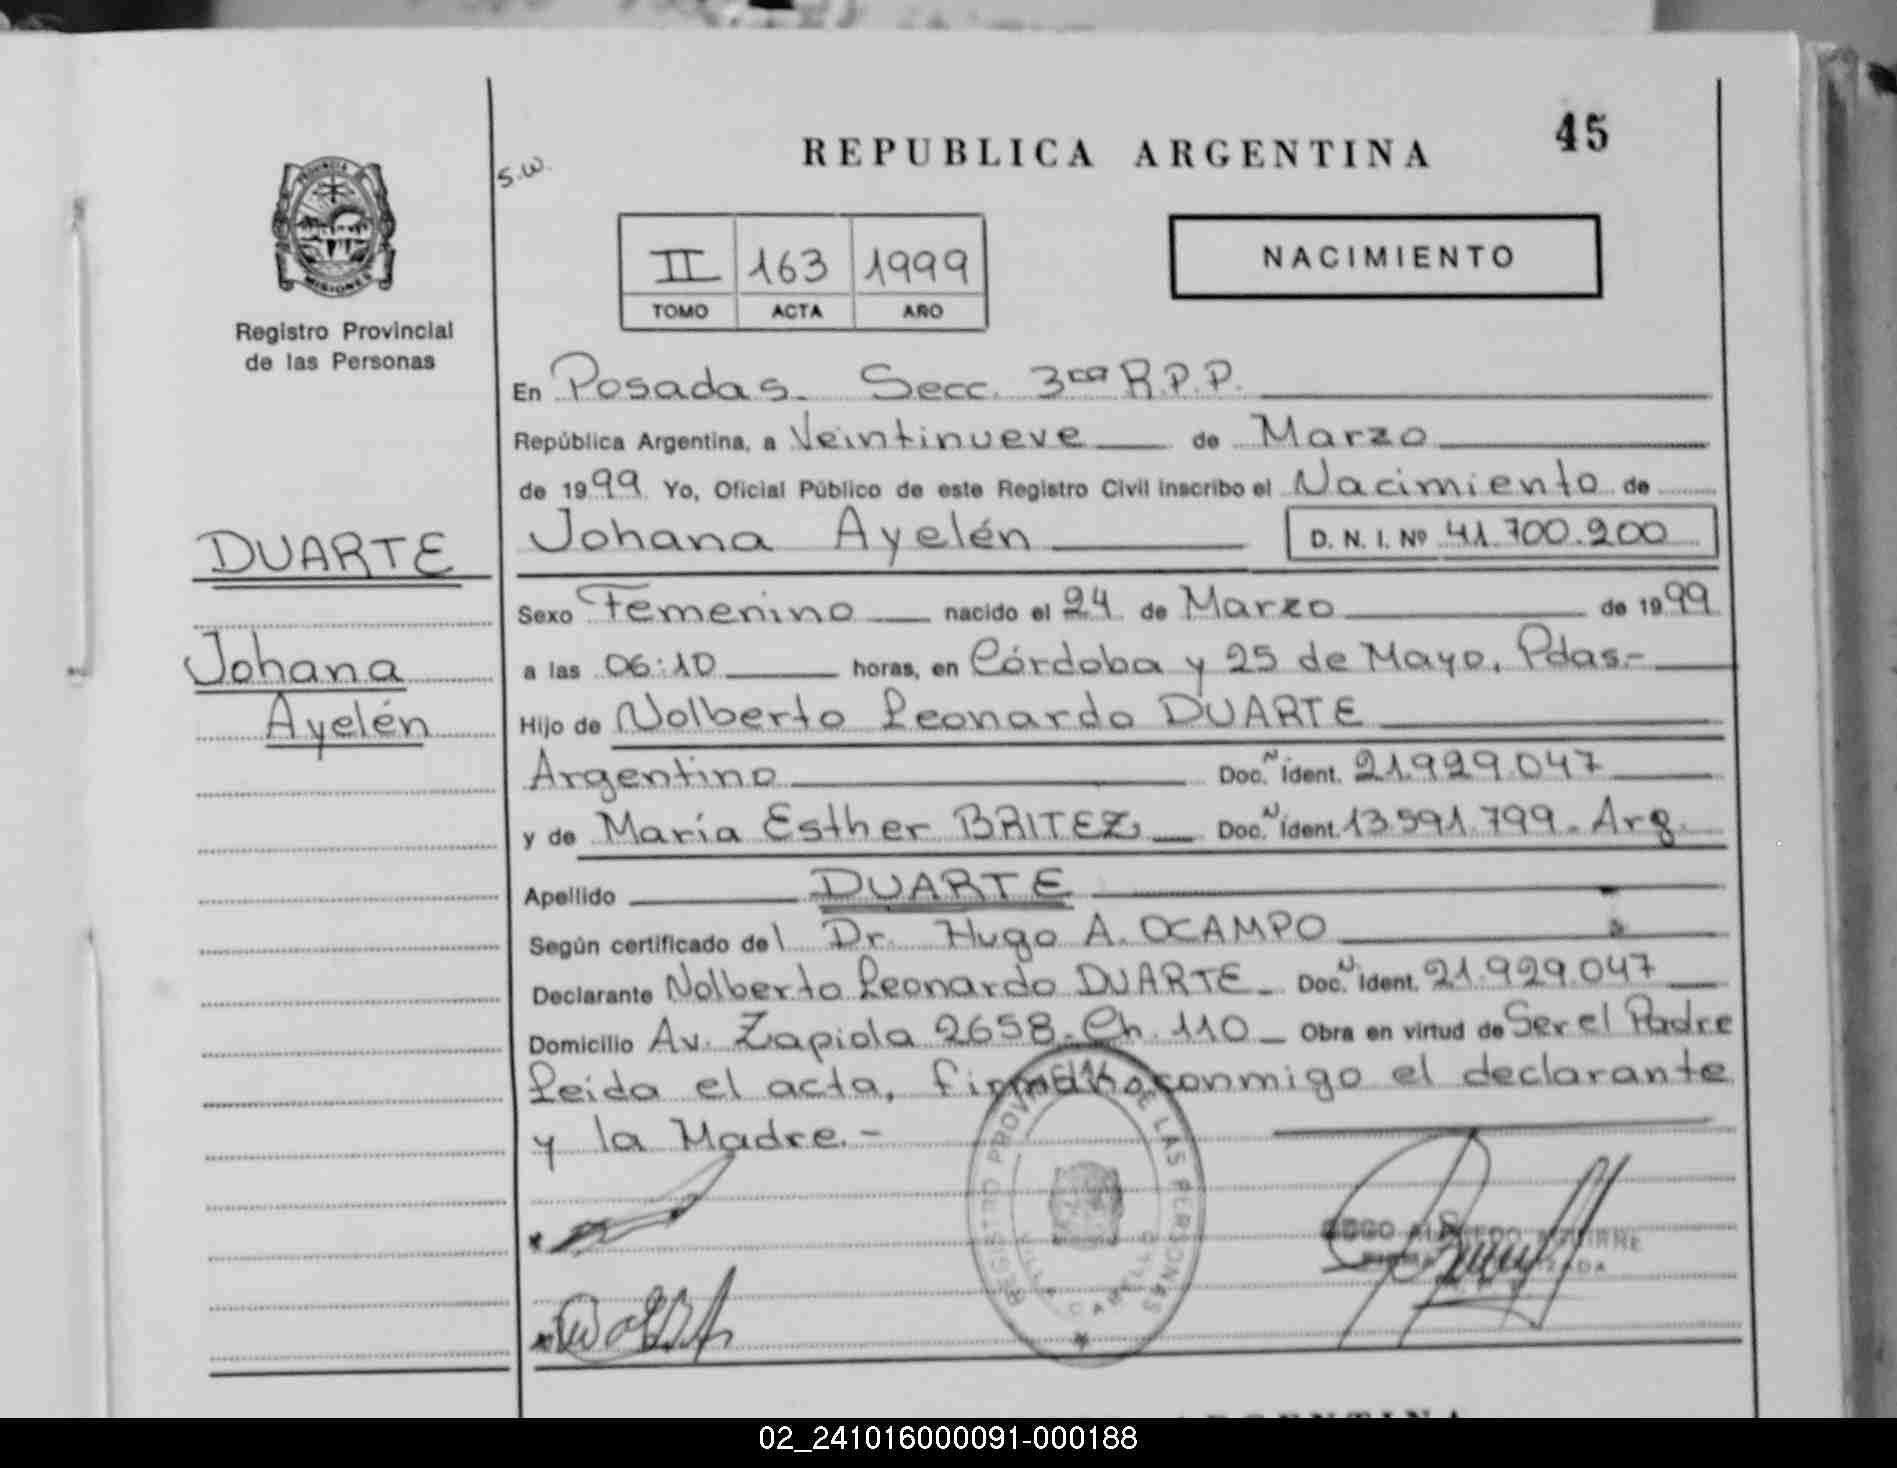 45
REPUBLICA ARGENTINA
S.W.
PROVINCIA DE
MISIONES
Registro Provincial
de las Personas
II 163 1999
TOMO ACTA AÑO
NACIMIENTO
En Posadas. Secc. 3ra R.P.P.
República Argentina, a Veintinueve de Marzo
de 1999 Yo, Oficial Público de este Registro Civil inscribo el Nacimiento de
DUARTE
Johana Ayelén D. N. I. Nº 41.700.200
Sexo Femenino nacido el 24 de Marzo de 1999
Johana
a las 06:10 horas, en Córdoba y 25 de Mayo, Pdas.-
Ayelén
Hijo de Nolberto Leonardo DUARTE
Argentino Doc. N Ident. 21.929.047
y de María Esther BRITEZ Doc. N Ident. 13.591.799. Arg.
Apellido DUARTE
Según certificado del Dr. Hugo A. OCAMPO
Declarante Nolberto Leonardo DUARTE Doc. N Ident. 21.929.047
Domicilio Av. Zapiola 2658. Ch. 110 Obra en virtud de Ser el Padre
Leida el acta, conmigo el declarante
y la Madre.-
REGISTRO PROVINCIAL DE LAS PERSONAS
VILLA CABELLO
AGUIRRE
02_241016000091-000188